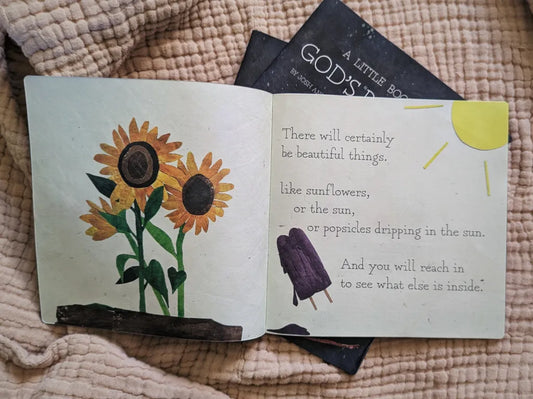 A LITTLE
GOD'S
BY JOSH
There will certainly
be beautiful things.
like sunflowers,
or the sun,
or popsicles dripping in the sun.
And you will reach in
to see what else is inside."